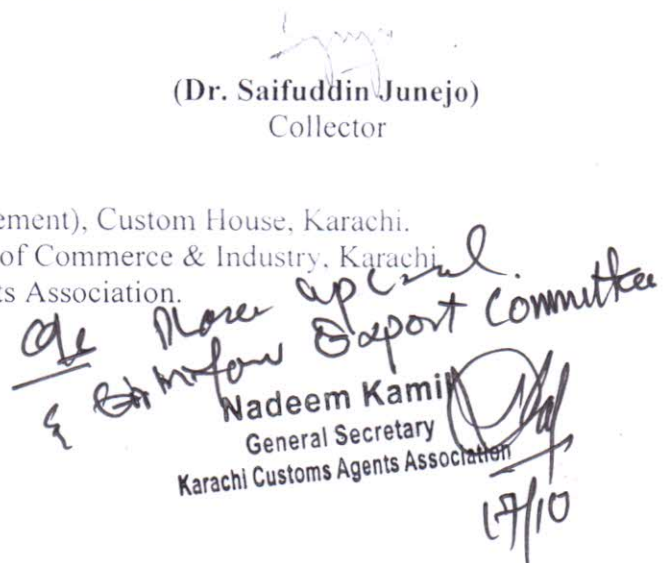 (Dr. Saifuddin Junejo)
Collector
ement), Custom House, Karachi.
of Commerce & Industry, Karachi
ts Association.
Please
& Export Committee
Nadeem Kamil
General Secretary
Karachi Customs Agents Association
17/10